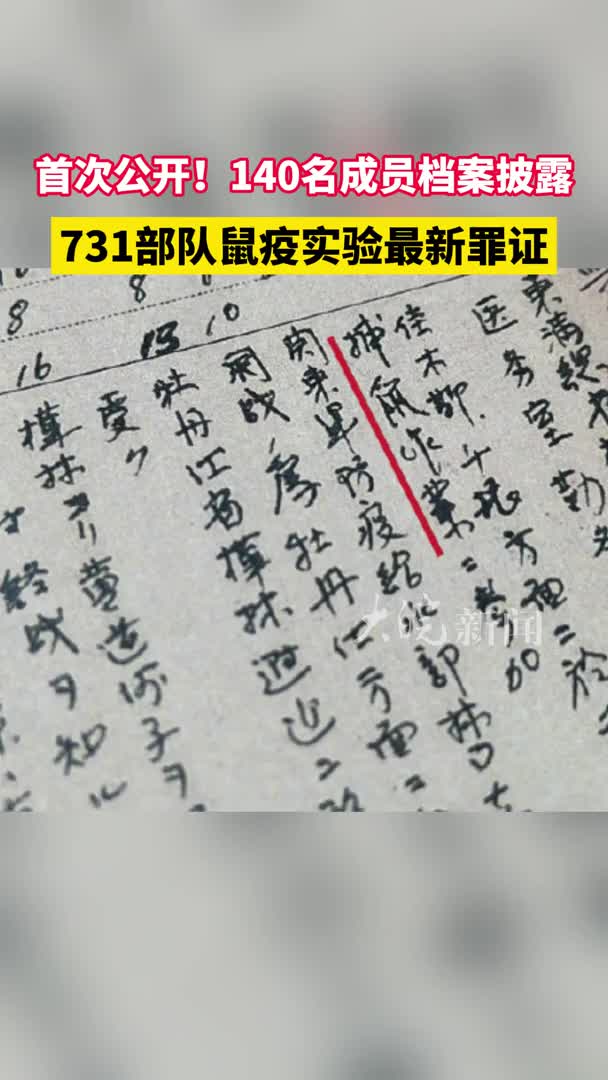 首次公开！140名成员档案披露
731部队鼠疫实验最新罪证
8 8
16 13 10
東満總
医务室勤
佳木斯、千振方面ニ於
捕鼠作業ニ参加
関東軍防疫給水部林口支
開戦ノ為牡丹江方面ニ
牡丹江省樺林避近ニ
受ケ
樺林ヨリ黄道河子ヲ
終戦ヲ知ル
大皖新闻